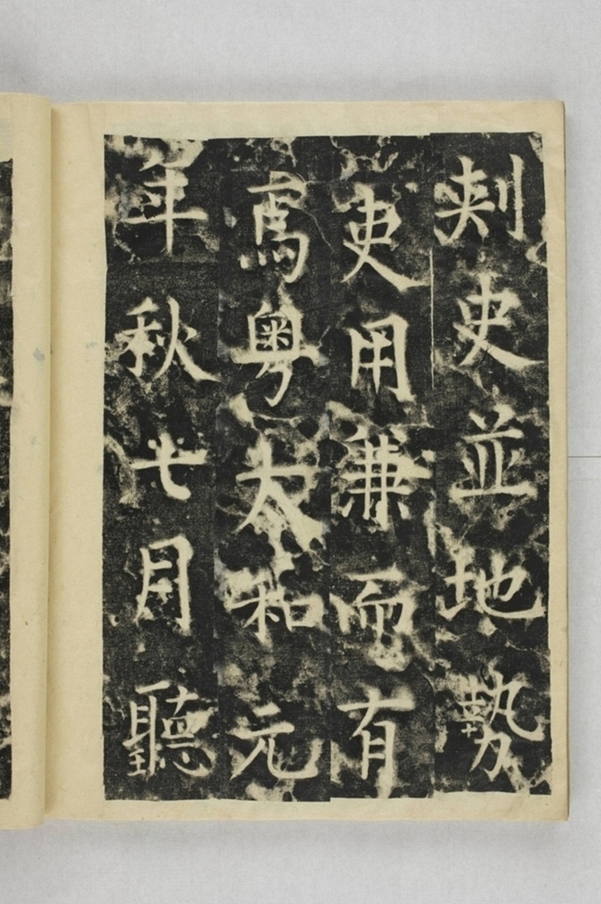 刾史並地勢
吏用兼而有
焉粤大和元
年秋七月聽